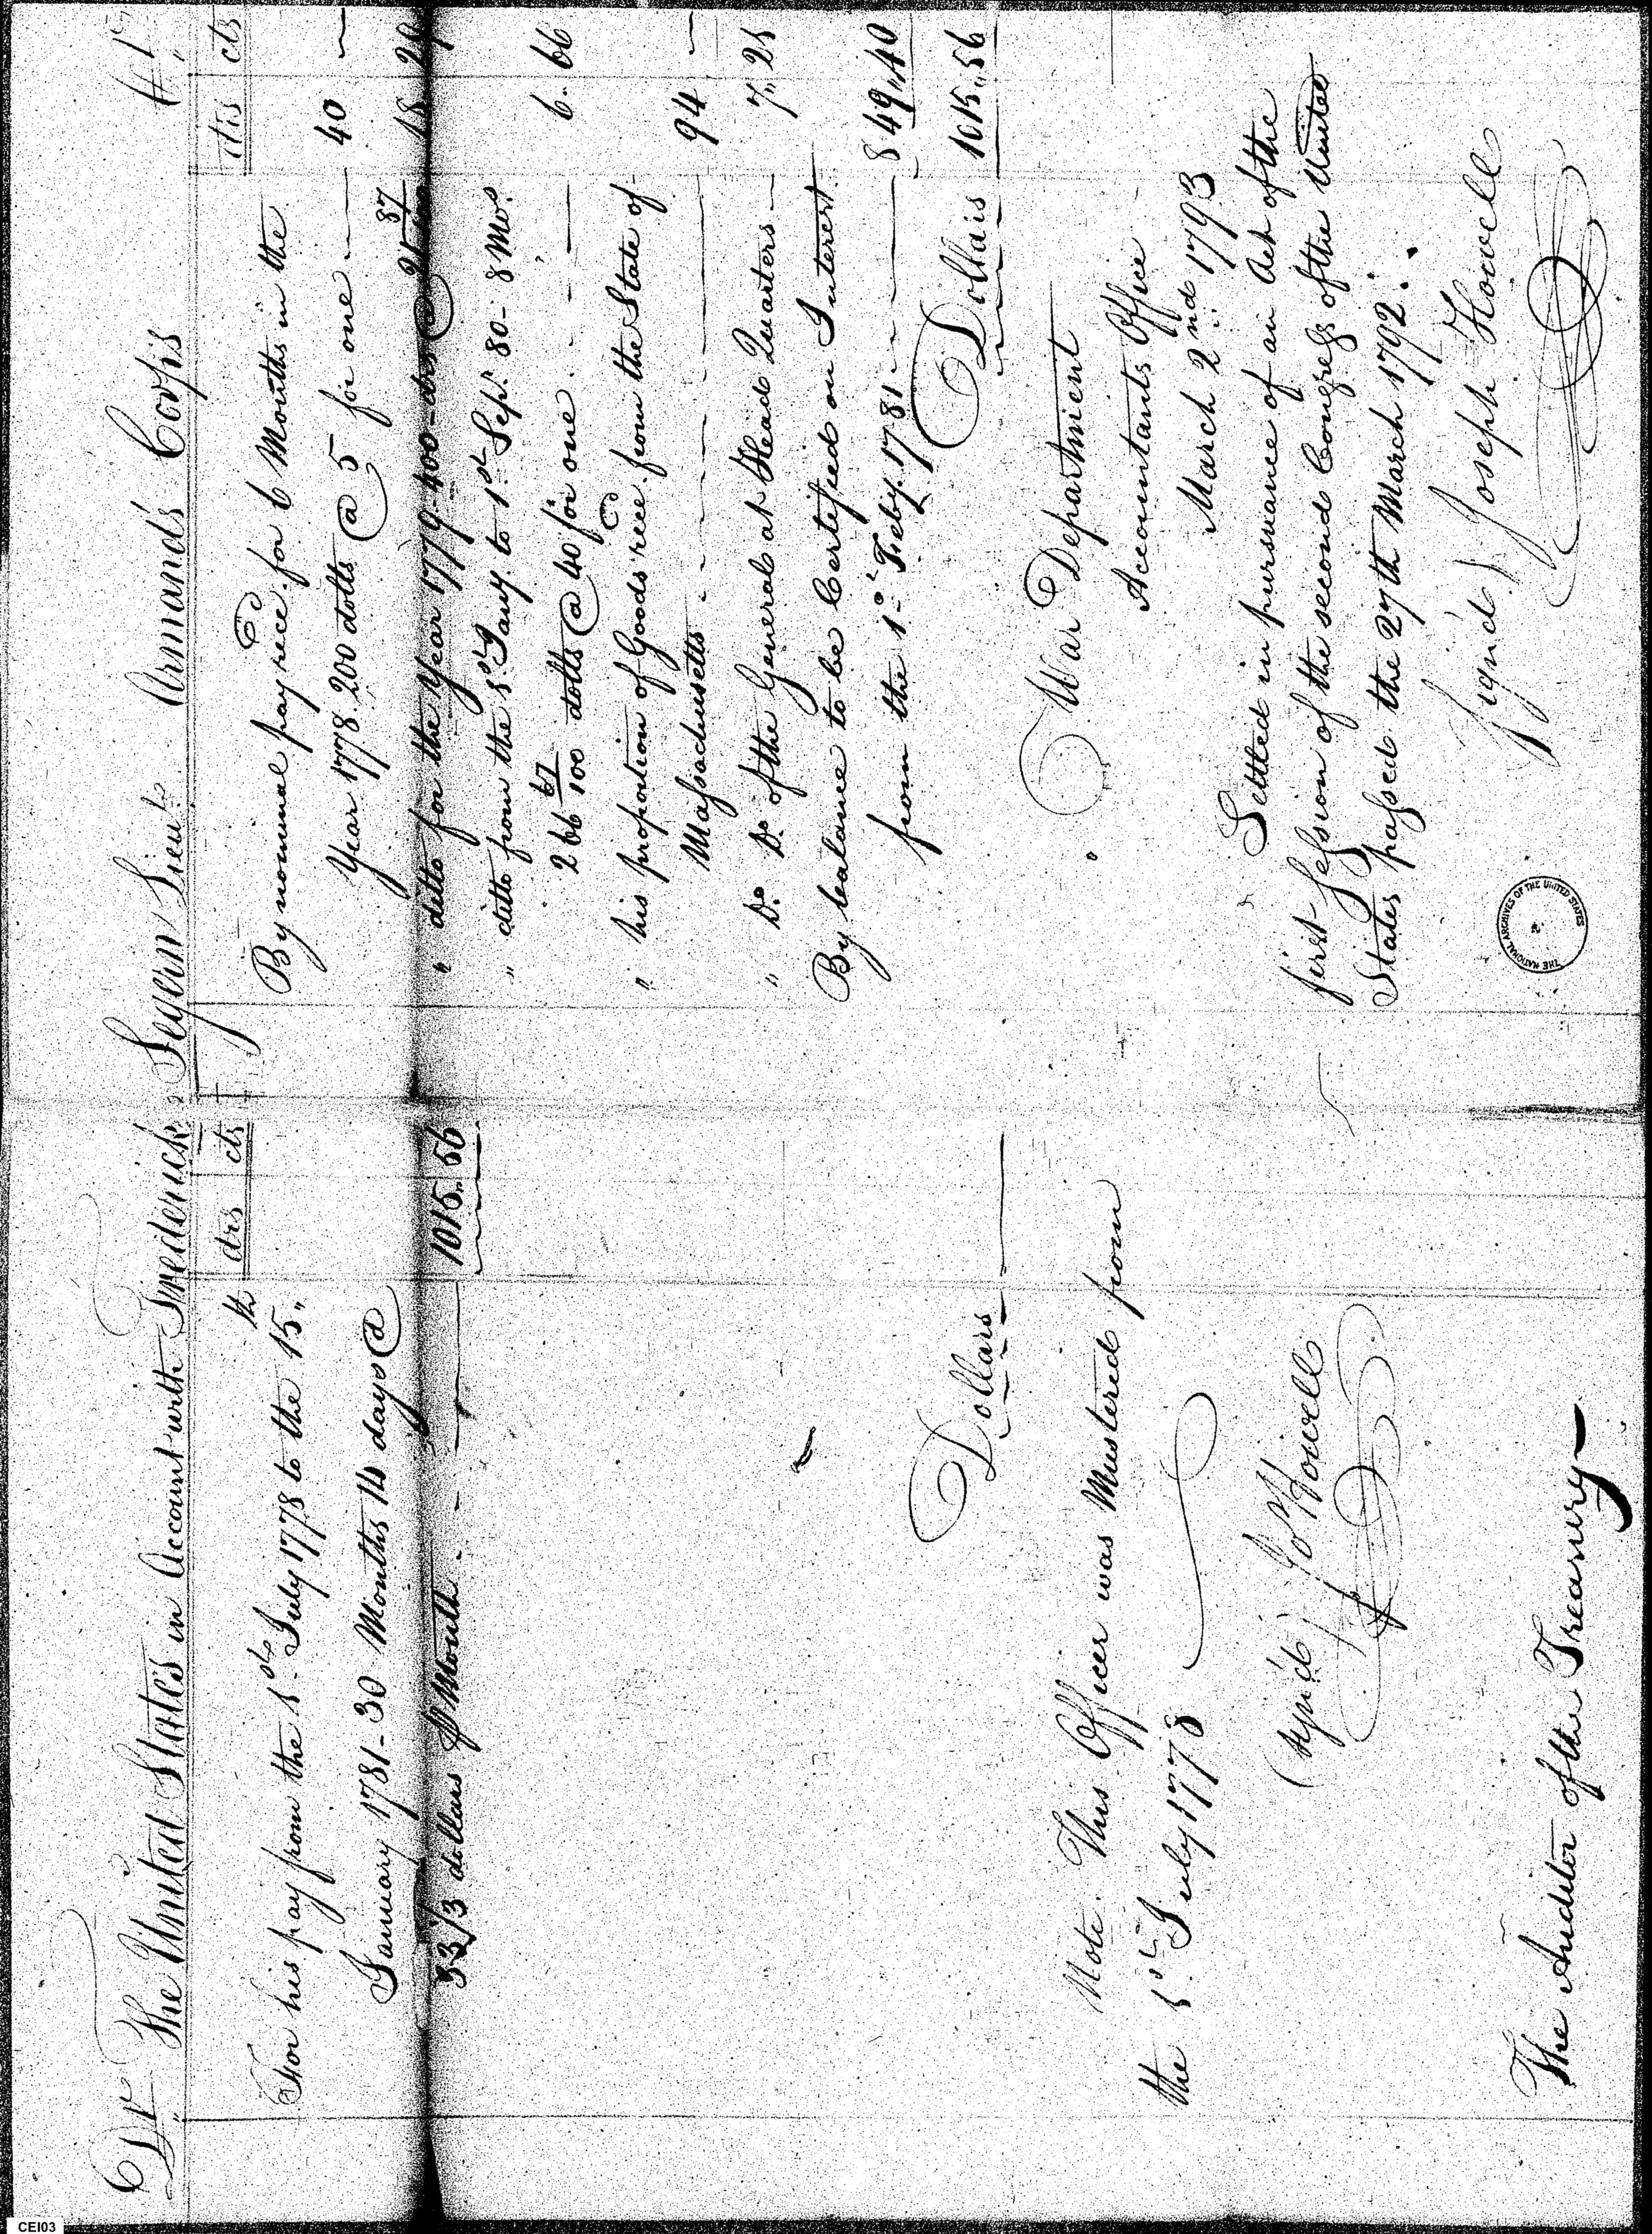 Dr The United States in Account with Frederick Segern Lieut. Armands Corps Cr
drs cts
For his pay from the 1st July 1778 to the 15th
January 1781 - 30 Months 14 days @
33 1/3 dollars P Month 1015.. 56
Dollars
Note. This Officer was Mustered from
the 1st July 1778
(Sign'd) Jo Howell
The Auditor of the Treasury
drs cts
By nominal pay rece'd for 6 Months in the
Year 1778 200 dolls @ 5 for one 40 —
" ditto for the Year 1779. 400 - drs @ 21 87/100 18 29
" ditto from the 1st Jany to 1st Sept. 80 - 8 Mos.
266 67/100 dolls @ 40 for one 6. 66
" his proportion of Goods rece'd from the State of
Massachusetts 94 —
" Do. Do. of the General at Head Quarters 7.. 21
By balance to be Certified on Interest
from the 1st Feby. 1781 849.. 40
Dollars 1015.. 56
War Department
Accountants Office
March 2nd 1793
Settled in pursuance of an Act of the
first Session of the second Congress of the United
States passed the 27th March 1792.
Sign'd Joseph Howell
THE NATIONAL ARCHIVES OF THE UNITED STATES
CEI03